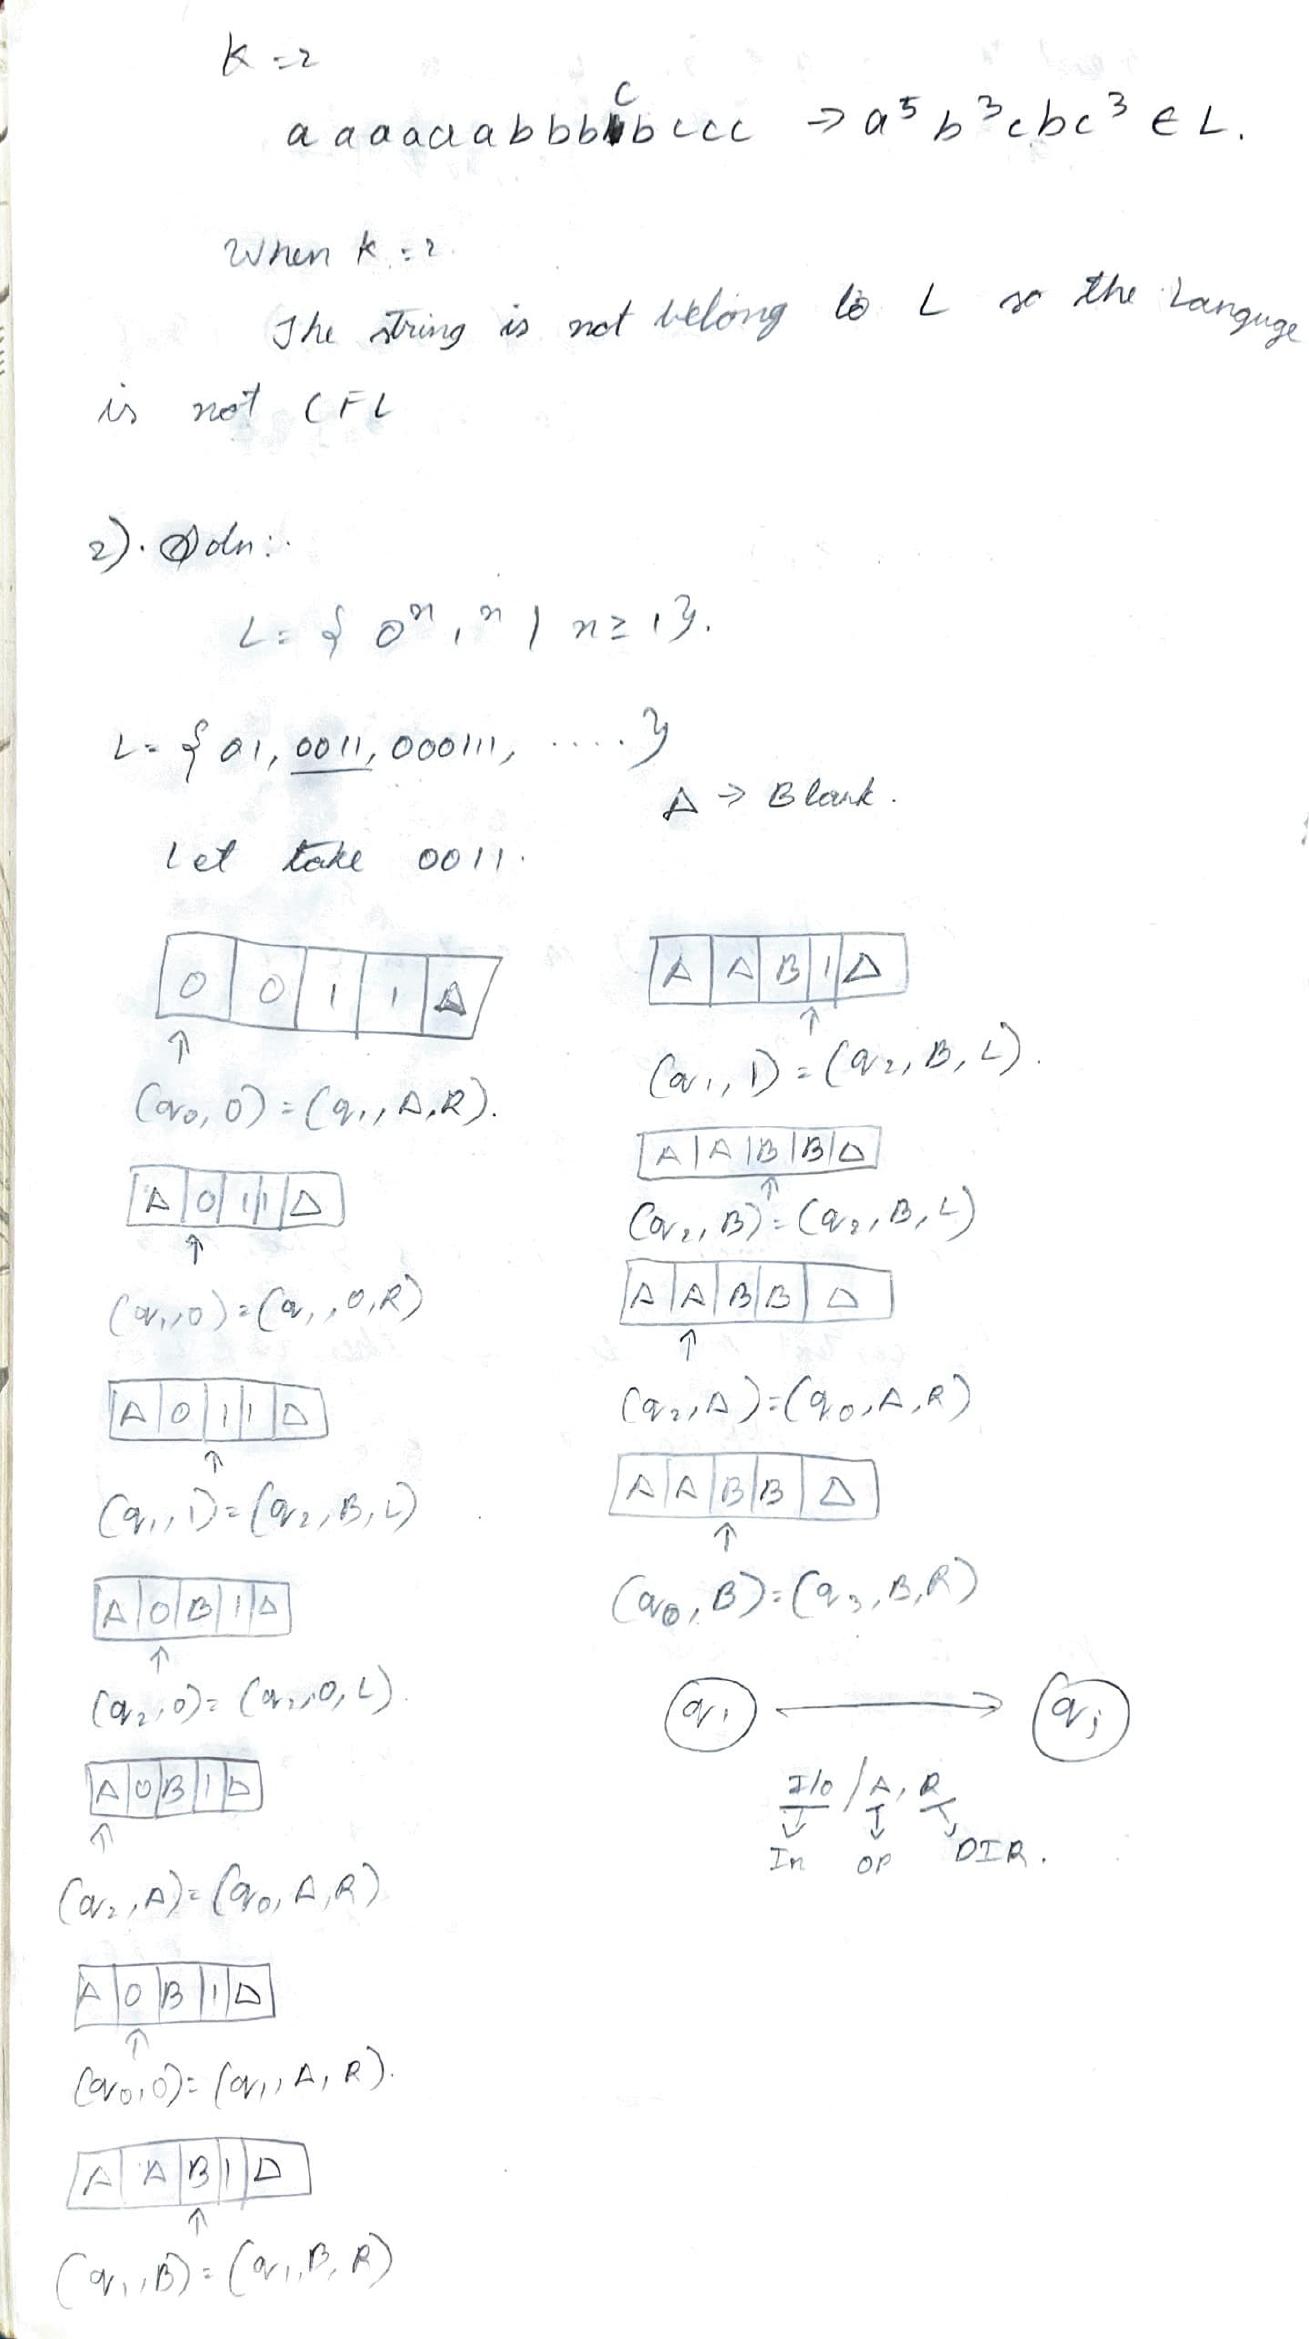 K = 2
c
a a a a a a b b b b c c c → a⁵ b³ c b c³ ∈ L.
When K = 2.
The string is not belong to L so the Languge
is not CFL
2). Soln:.
L = { 0ⁿ 1ⁿ | n ≥ 1 }.
L = { 01, 0011, 000111, ..... }
Δ → Blank.
Let take 0011.
0 | 0 | 1 | 1 | Δ
↑
(q₀, 0) = (q₁, A, R).
A | 0 | 1 | 1 | Δ
↑
(q₁, 0) = (q₁, 0, R)
A | 0 | 1 | 1 | Δ
↑
(q₁, 1) = (q₂, B, L)
A | 0 | B | 1 | Δ
↑
(q₂, 0) = (q₂, 0, L).
A | 0 | B | 1 | Δ
↑
(q₂, A) = (q₀, A, R)
A | 0 | B | 1 | Δ
↑
(q₀, 0) = (q₁, A, R).
A | A | B | 1 | Δ
↑
(q₁, B) = (q₁, B, R)
A | A | B | 1 | Δ
↑
(q₁, 1) = (q₂, B, L).
A | A | B | B | Δ
↑
(q₂, B) = (q₂, B, L)
A | A | B | B | Δ
↑
(q₂, A) = (q₀, A, R)
A | A | B | B | Δ
↑
(q₀, B) = (q₃, B, R)
qᵢ → qⱼ
I/0 / A, R
↓ ↓ ↘
In OP DIR.